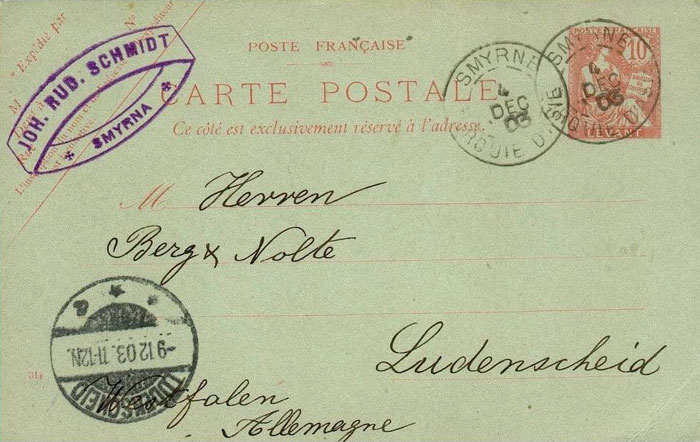 M Expédié par
JOH. RUD. SCHMIDT
SMYRNA
POSTE FRANÇAISE
CARTE POSTALE
Ce côté est exclusivement réservé à l'adresse.
SMYRNA
DEC
03
TURQUIE D'ASIE
SMYRNE
DEC
03
POSTE FRANÇAISE
10
LEVANT
M Herren
Berg & Nolte
Ludenscheid
Westfalen
Allemagne
-9 12 03. 11-12N.
LÜDENSCHEID